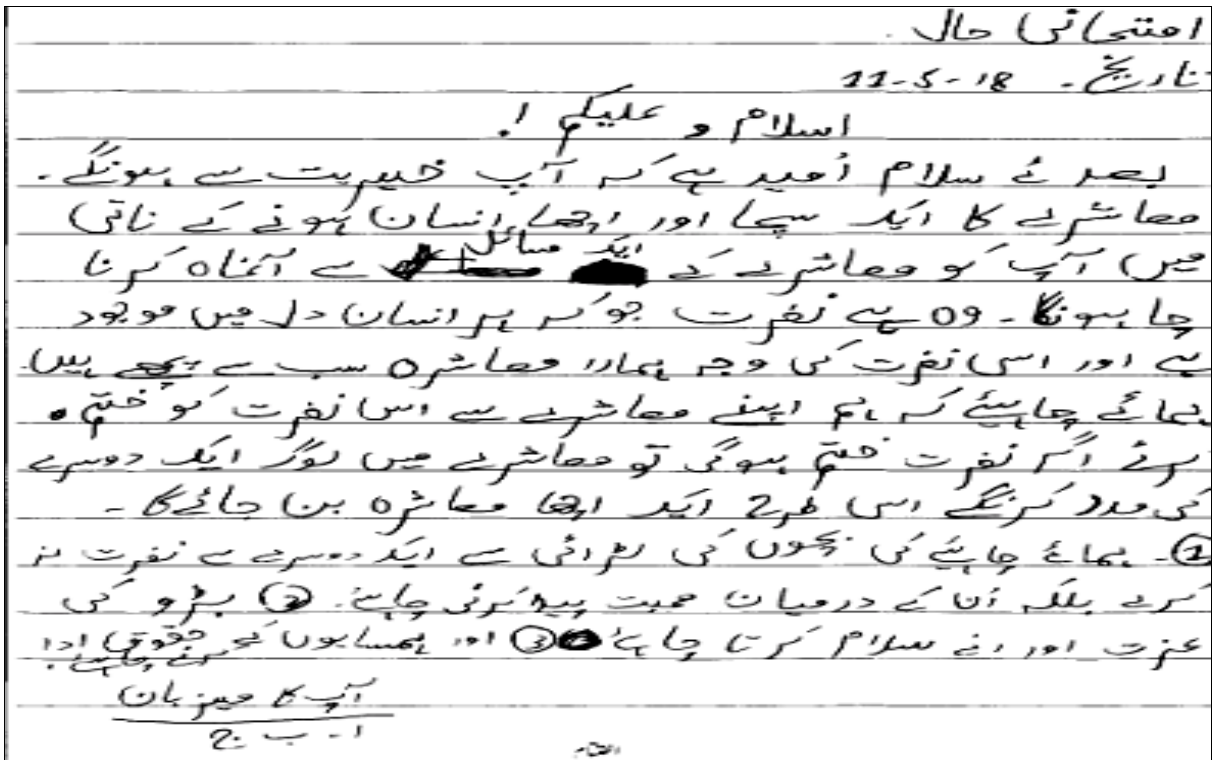 امتحانی حال
تاریخ - 18-5-11
اسلام و علیکم !
بعد ئے سلام اُمید ہے کہ آپ خیریت سے ہونگے۔
معاشرے کا ایک سچا اور اچھا انسان ہونے کے ناتی
میں آپ کو معاشرے کے ایک مسائل سے آئناہ کرنا
چا ہونگا - وہ ہے نفرت جو کہ ہر انسان دل میں موجود
ہے اور اسی نفرت کی وجہ ہمارا معاشرہ سب سے پیچھے ہیں۔
ہمائے چاہیئے کہ ہم اپنے معاشرے سے اس نفرت کو ختم
کرئے اگر نفرت ختم ہوگی تو معاشرے میں لوگ ایک دوسرے
کی مدد کرنگے اسی طرح ایک اچھا معاشرہ بن جائےگا -
① - ہمائے چاہیئے کی بچوں کی لڑائی سے ایک دوسرے سے نفرت نہ
کرے بلکہ اُن کے درمیان محبت پیدا کرنی چاہئے۔ ② بڑو کی
عزت اور انے سلام کرتا چاہئے ③ اور ہمسایوں کے حقوق ادا
کرنے چاہئے۔
آپ کا میزبان
ا - ب - ج